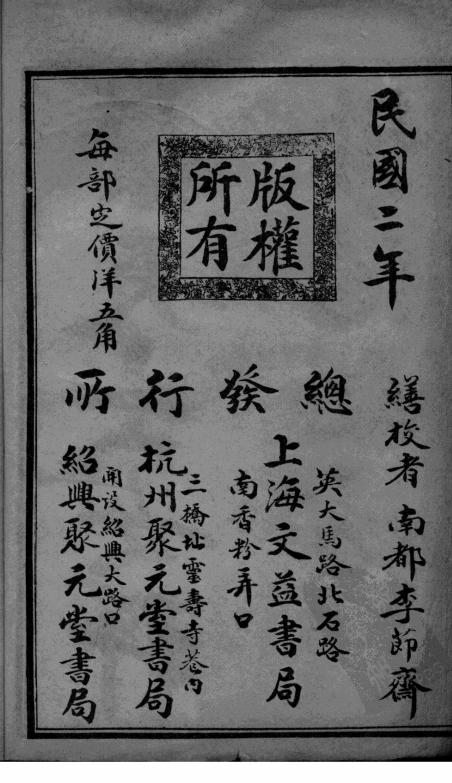 民國二年
版權
所有
每部定價洋五角
繕校者 南都李節齋
總發行所
英大馬路北石路
南香粉弄口
上海文益書局
三橋址靈壽寺巷內
杭州聚元堂書局
開設紹興大路口
紹興聚元堂書局